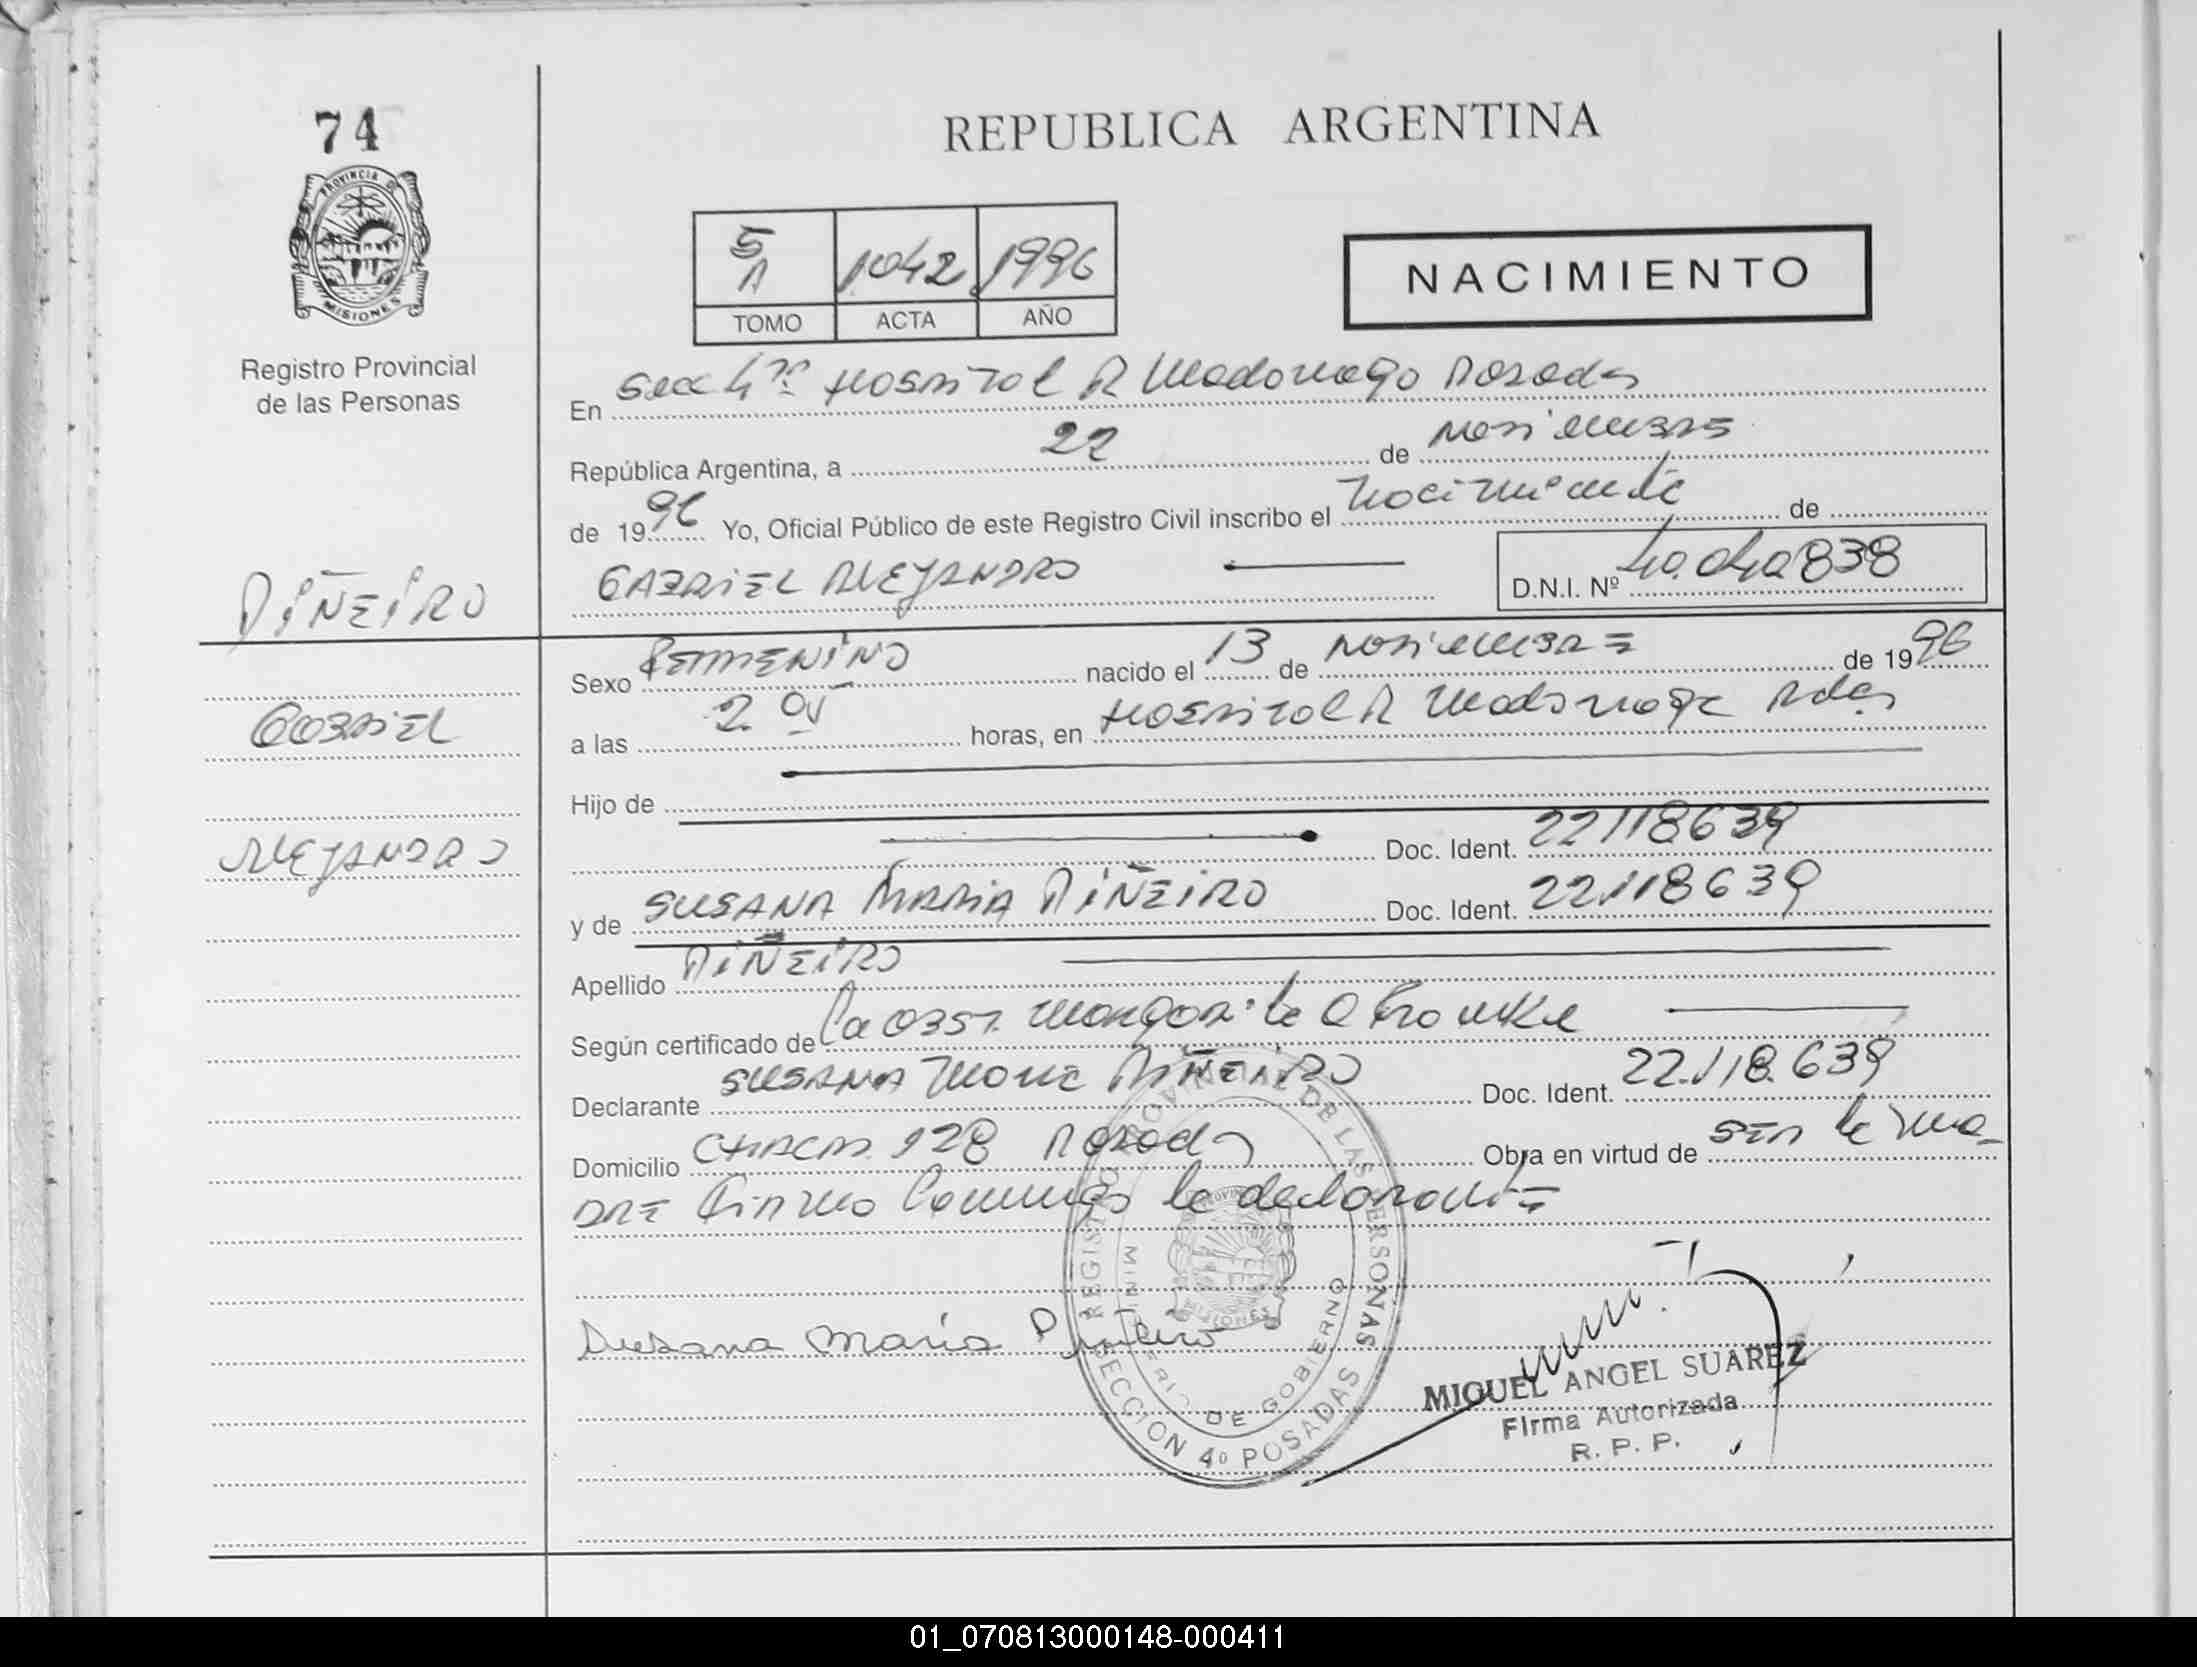 74
REPUBLICA ARGENTINA
PROVINCIA DE
MISIONES
5 A 1042 1996
TOMO ACTA AÑO
NACIMIENTO
Registro Provincial
de las Personas
En Secc 4ta Hospital R Madariaga Posadas
República Argentina, a 22 de Noviembre
de 1996 Yo, Oficial Público de este Registro Civil inscribo el nacimiento de
GABRIEL ALEJANDRO
D.N.I. Nº 40.040838
PIÑEIRO
GABRIEL
ALEJANDRO
Sexo FEMENINO nacido el 13 de Noviembre de 1996
a las 2 horas, en Hospital R Madariaga Pdas
Hijo de
Doc. Ident. 22118639
y de SUSANA MARIA PIÑEIRO Doc. Ident. 22118639
Apellido PIÑEIRO
Según certificado de La Obst.
Declarante SUSANA Maria PIÑEIRO Doc. Ident. 22.118.639
Domicilio CHACRA 128 Posadas Obra en virtud de ser la ma-
dre Firma Conmigo la declarante
Susana María Piñeiro
REGISTRO PROVINCIAL DE LAS PERSONAS
MINISTERIO DE GOBIERNO
MISIONES
SECCION 4º POSADAS
MIGUEL ANGEL SUAREZ
Firma Autorizada
R. P. P.
01_070813000148-000411